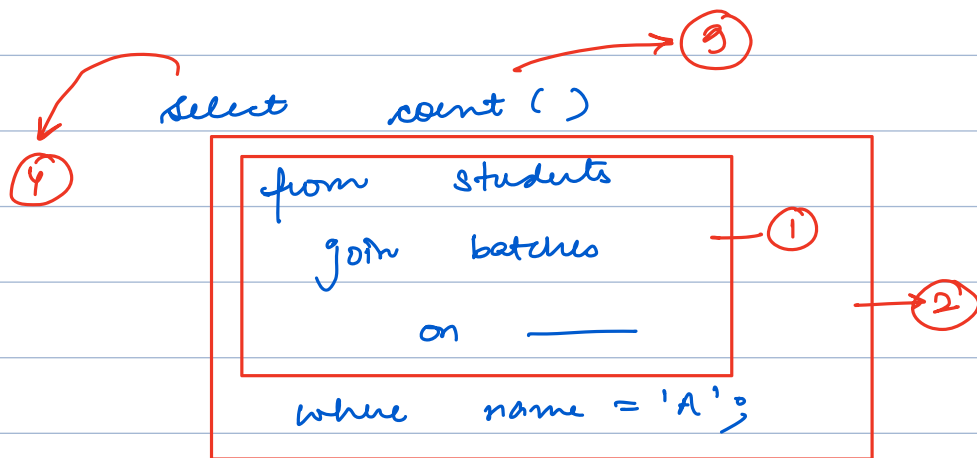 3
select count ( )
4
from students
1
join batches
2
on ______
where name = 'A' ;